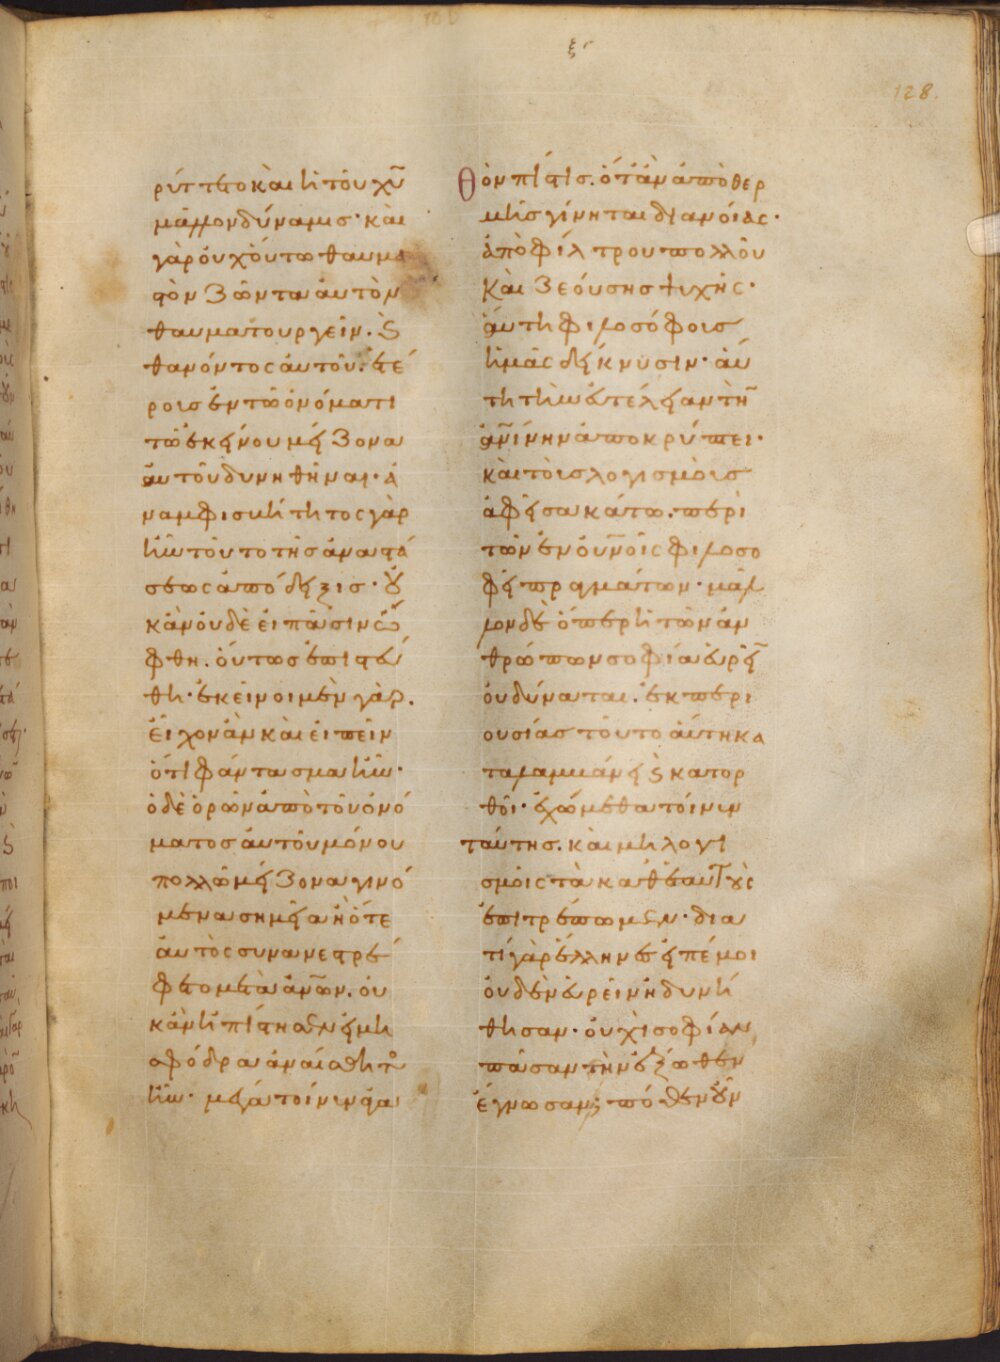 ξ
128.
ρύττετο καὶ ἡ τοῦ χῦ
μᾶλλον δύναμισ· καὶ
γὰρ οὐχ οὕτω θαυμα
στὸν ζῶντα αὐτὸν
θαυματουργεῖν. ὡς
θανόντος αὐτοῦ. ἑτέ
ροισ ἐν τῶ ὀνόματι
τῶ ἐκείνου μείζονα
αὐτοῦ δυνηθῆναι· ἀ
ναμφισβήτητος γὰρ
ἦν τοῦτο τῆσ ἀναστά
σεως ἀπόδειξισ· οὐ
κἂν οὐδὲ εἰ πᾶσιν ὤ
φθη. οὕτωσ ἐπιστεύ
θη· ἐκεῖνοι μὲν γὰρ.
εἶχον ἂν καὶ εἰπεῖν
ὅτι φάντασμα ἦν·
ὁ δὲ ὁρῶν ἀπὸ τοῦ ὀνό
ματοσ αὐτοῦ μόνου
πολλῶ μείζονα γινό
μενα σημεῖα ἢ ὅτε
αὐτὸς συνανεστρέ
φετο μετὰ ἀνῶν. οὐ
κἂν ἠπίστησεν εἰ μὴ
σφόδρα ἀναίσθητο
ἦν· μέγα τοίνυν ἀγα
θὸν πίστισ. ὅτ' ἂν ἀπὸ θερ
μῆσ γίνηται διανοίας·
ἀπὸ φίλτρου πολλοῦ
καὶ ζεούσησ ψυχῆς·
αὕτη φιλοσόφουσ
ἡμᾶς δείκνυσιν· αὕ
τη τὴν εὐτέλειαν τὴν
ἀνίνην ἀποκρύπτει·
καὶ τοὺσ λογισμοὺσ
ἀφεῖσα κάτω. περὶ
τῶν ἐν οὐνοῖς φιλοσο
φεῖ πραγμάτων· μᾶλ
λον δὲ ὅπερ ἡ τῶν ἀν
θρώπων σοφία εὑρεῖν
οὐ δύναται. ἐκ περι
ουσίασ τοῦτο αὕτη κα
ταλαμβάνει καὶ κατορ
θοῖ· ἐχώμεθα τοίνυν
ταύτησ. καὶ μὴ λογι
σμοῖς τὰ καθ' ἑαυτοὺς
ἐπιτρέπωμεν· δια
τί γὰρ ἕλληνες εἰπέ μοι
οὐδὲν εὑρεῖν ἠδυνή
θησαν· οὐχὶ σοφίαν
πᾶσαν τὴν ἔξωθεν
ἔγνωσαν; πόθεν οὖν